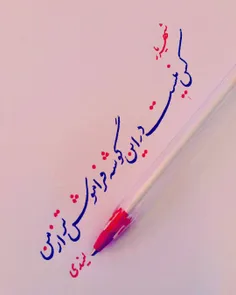 شهریار
کس نیست در این گوشه فراموش تر از من